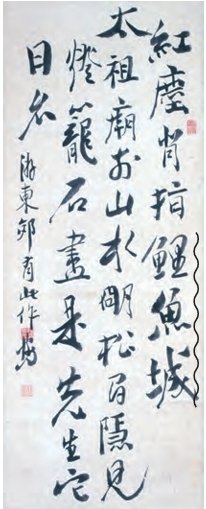 紅塵背指鯉魚城
太祖廟前山水明松間隱見
燈籠石畫是先生它
日名
游東郊有此作